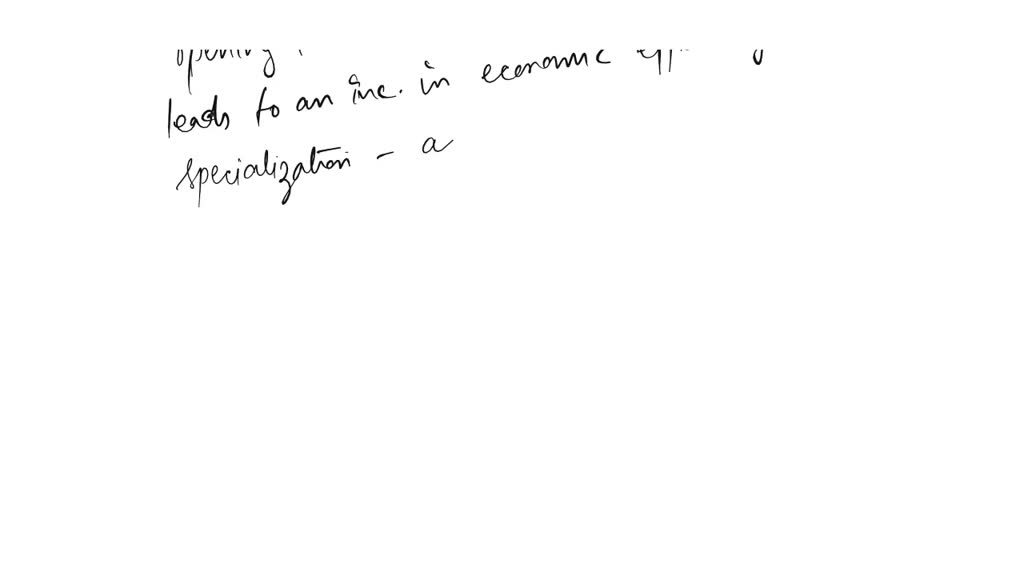 opening
leads to an inc. in economic
specialization - a